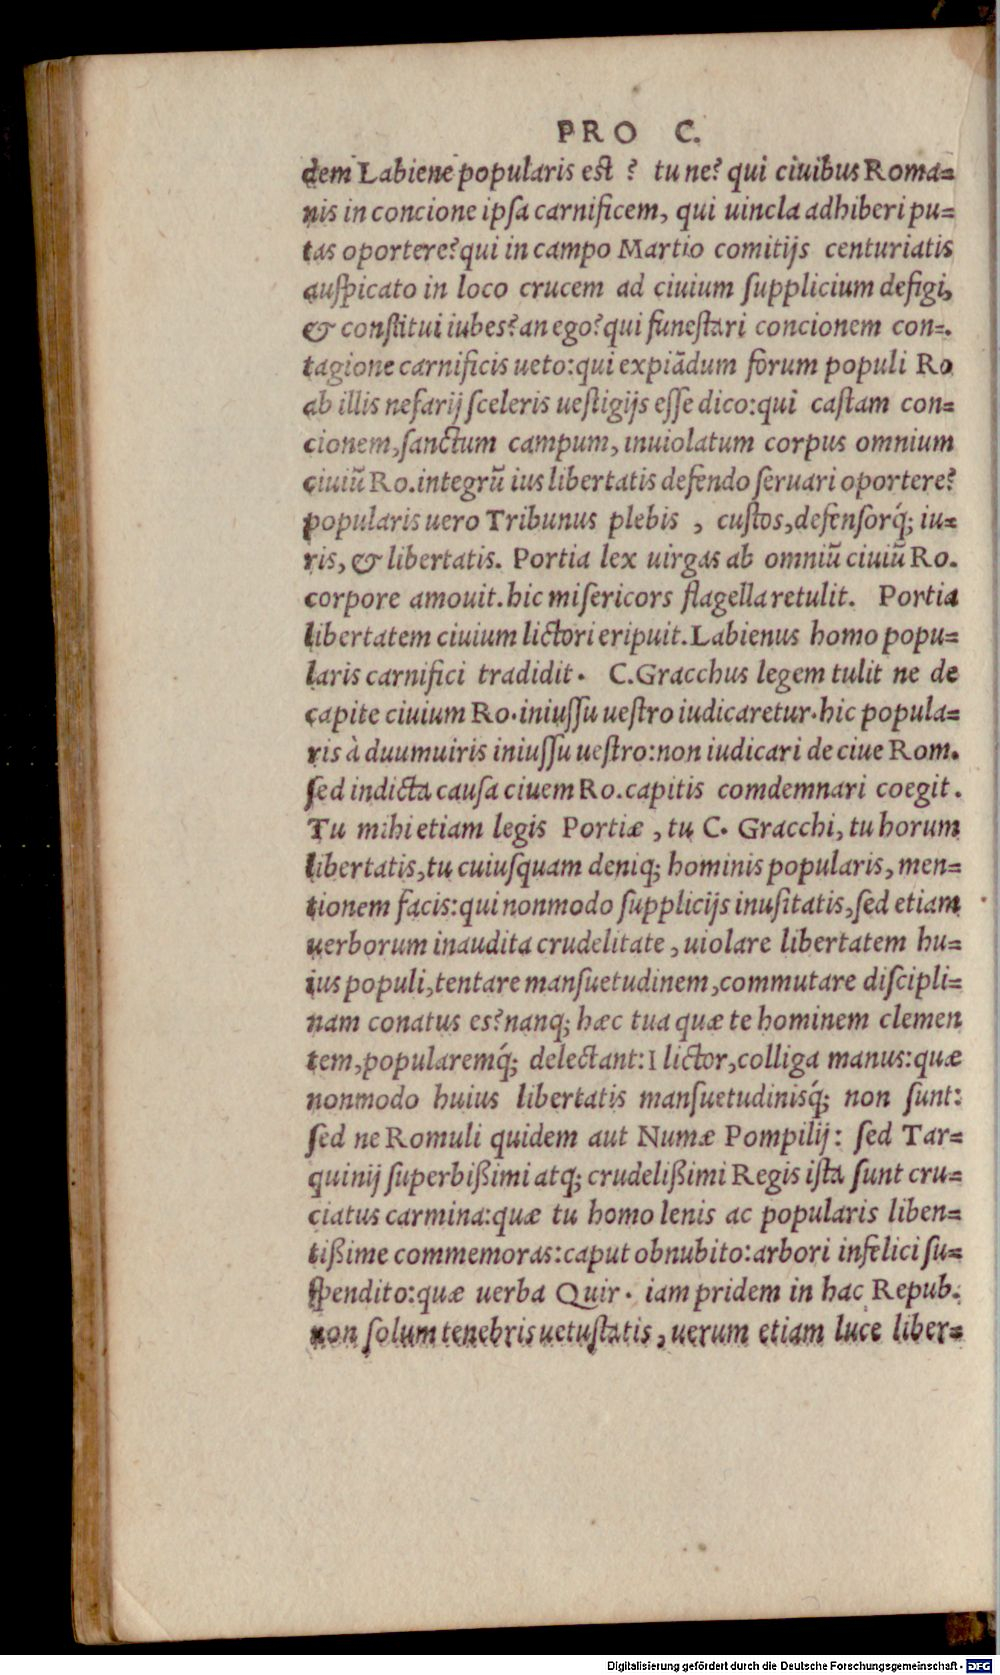 PRO C.
dem Labiene popularis est ? tu ne? qui ciuibus Roma=
nis in concione ipſa carnificem, qui uincla adhiberi pu=
tas oportere? qui in campo Martio comitijs centuriatis
auſpicato in loco crucem ad ciuium ſupplicium defigi,
& conſtitui iubes? an ego? qui funeſtari concionem con=.
tagione carnificis ueto: qui expiãdum forum populi Ro
ab illis nefarij ſceleris ueſtigijs eſſe dico: qui caſtam con=
cionem, ſanctum campum, inuiolatum corpus omnium
ciuiũ Ro. integrũ ius libertatis defendo ſeruari oportere?
popularis uero Tribunus plebis , cuſtos, defenſorq́; iu=
ris, & libertatis. Portia lex uirgas ab omniũ ciuiũ Ro.
corpore amouit. hic miſericors flagella retulit. Portia
libertatem ciuium lictori eripuit. Labienus homo popu=
laris carnifici tradidit. C. Gracchus legem tulit ne de
capite ciuium Ro. iniuſſu ueſtro iudicaretur. hic popula=
ris à duumuiris iniuſſu ueſtro: non iudicari de ciue Rom.
ſed indicta cauſa ciuem Ro. capitis comdemnari coegit.
Tu mihi etiam legis Portiæ , tu C. Gracchi, tu horum
libertatis, tu cuiuſquam deniq; hominis popularis, men=
tionem facis: qui nonmodo ſupplicijs inuſitatis, ſed etiam
uerborum inaudita crudelitate , uiolare libertatem hu=
ius populi, tentare manſuetudinem, commutare diſcipli=
nam conatus es? nanq; hæc tua quæ te hominem clemen
tem, popularemq́; delectant: I lictor, colliga manus: quæ
nonmodo huius libertatis manſuetudinisq́; non ſunt:
ſed ne Romuli quidem aut Numæ Pompilij: ſed Tar=
quinij ſuperbißimi atq; crudelißimi Regis iſta ſunt cru=
ciatus carmina: quæ tu homo lenis ac popularis liben=
tißime commemoras: caput obnubito: arbori infelici ſu=
ſpendito: quæ uerba Quir. iam pridem in hac Repub.
non ſolum tenebris uetuſtatis , uerum etiam luce liber=
Digitalisierung gefördert durch die Deutsche Forschungsgemeinschaft - DFG